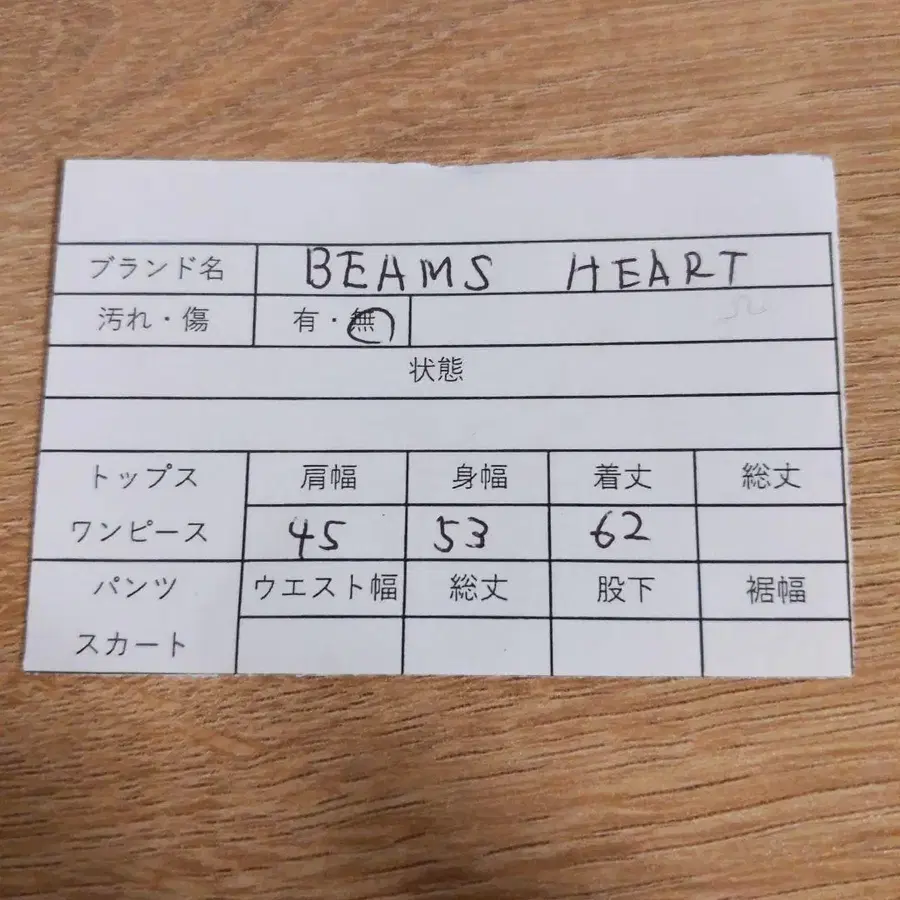 ブランド名 BEAMS HEART
汚れ・傷 有・無
状態
トップス 肩幅 身幅 着丈 総丈
ワンピース 45 53 62
パンツ ウエスト幅 総丈 股下 裾幅
スカート